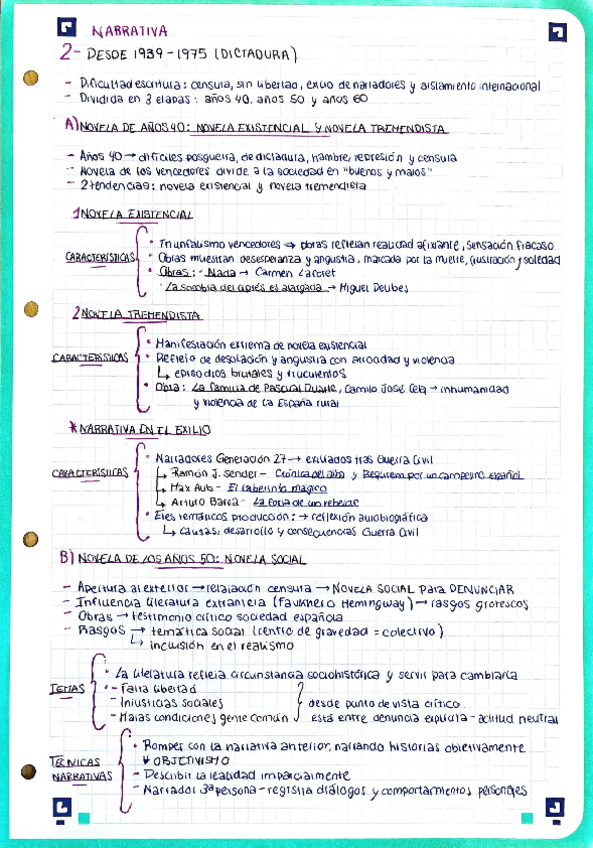 NARRATIVA
2- DESDE 1939-1975 (DICTADURA)
- Dificultad escritura: censura, sin libertad, exilio de narradores y aislamiento internacional
- Dividida en 3 etapas: años 40, años 50 y años 60
A) NOVELA DE AÑOS 40: NOVELA EXISTENCIAL Y NOVELA TREMENDISTA
- Años 40 → difíciles posguerra, de dictadura, hambre, represión y censura
- Novela de los vencedores divide a la sociedad en "buenos y malos"
- 2 tendencias: novela existencial y novela tremendista
1 NOVELA EXISTENCIAL
CARACTERÍSTICAS
· Triunfalismo vencedores ⇒ obras reflejan realidad asfixiante, sensación fracaso
· Obras muestran desesperanza y angustia, marcada por la muerte, frustración y soledad
· Obras: - Nada → Carmen Laforet
· La sombra del ciprés es alargada → Miguel Delibes
2 NOVELA TREMENDISTA
CARACTERÍSTICAS
· Manifestación extrema de novela existencial
· Reflejo de desolación y angustia con atrocidad y violencia
↳ episodios brutales y truculentos
· Obra: La familia de Pascual Duarte, Camilo José Cela → inhumanidad
y violencia de la España rural
* NARRATIVA EN EL EXILIO
CARACTERÍSTICAS
· Narradores Generación 27 → exiliados tras Guerra Civil
↳ Ramón J. Sender - Crónica del alba y Requiem por un campesino español
↳ Max Aub - El laberinto mágico
↳ Arturo Barea - La forja de un rebelde
· Ejes temáticos producción: → reflexión autobiográfica
↳ causas, desarrollo y consecuencias Guerra Civil
B) NOVELA DE LOS AÑOS 50: NOVELA SOCIAL
- Apertura al exterior → relajación censura → NOVELA SOCIAL para DENUNCIAR
- Influencia literatura extranjera (Faulkner o Hemingway) → rasgos grotescos
- Obras → testimonio crítico sociedad española
- Rasgos → temática social (centro de gravedad = colectivo)
↳ inclusión en el realismo
TEMAS
· La literatura refleja circunstancia sociohistórica y servir para cambiarla
· - Falta libertad
- Injusticias sociales
- Malas condiciones gente común
desde punto de vista crítico.
está entre denuncia explícita - actitud neutral
TÉCNICAS
NARRATIVAS
· Romper con la narrativa anterior, narrando historias objetivamente
↓ OBJETIVISMO
- Describir la realidad imparcialmente
- Narrador 3ª persona - registra diálogos y comportamientos personajes